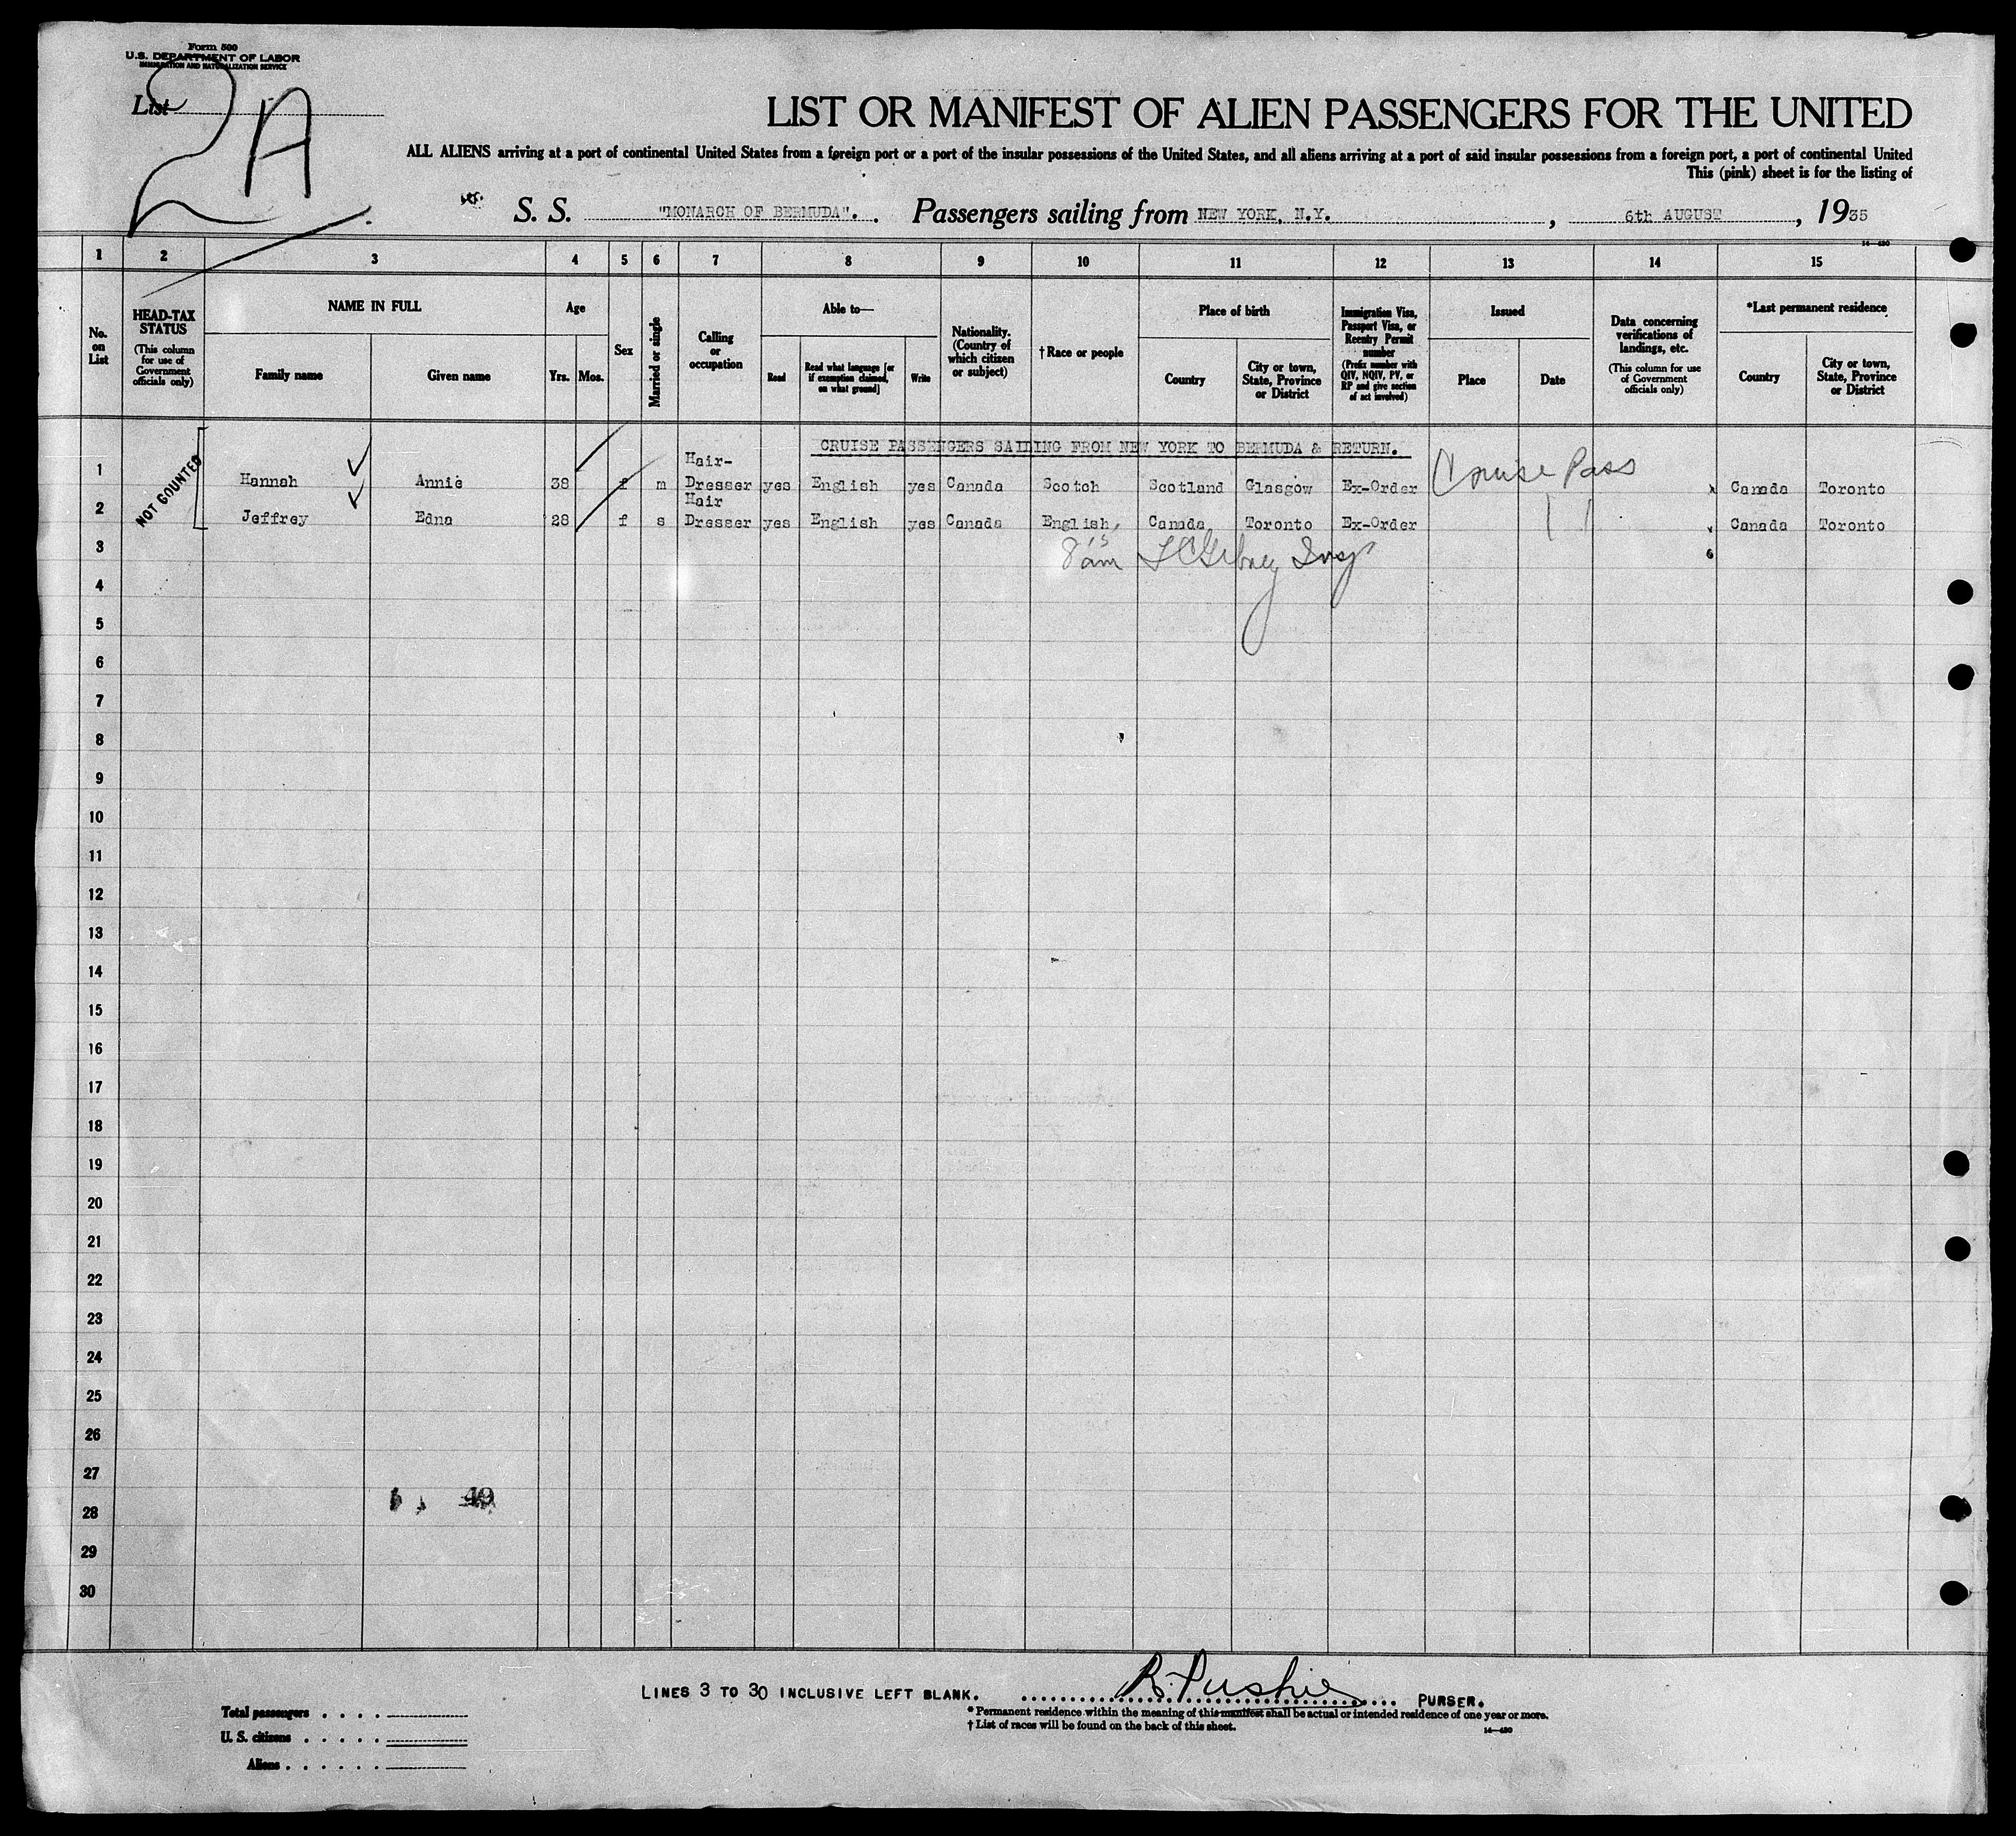 Form 500
U.S. DEPARTMENT OF LABOR
IMMIGRATION AND NATURALIZATION SERVICE
List 2A
LIST OR MANIFEST OF ALIEN PASSENGERS FOR THE UNITED
ALL ALIENS arriving at a port of continental United States from a foreign port or a port of the insular possessions of the United States, and all aliens arriving at a port of said insular possessions from a foreign port, a port of continental United
This (pink) sheet is for the listing of
S. S. "MONARCH OF BERMUDA". Passengers sailing from NEW YORK, N.Y. , 6th AUGUST , 1935
14—430
1 2 3 4 5 6 7 8 9 10 11 12 13 14 15
No. on List
HEAD-TAX STATUS (This column for use of Government officials only)
NAME IN FULL
Family name Given name
Age
Yrs. Mos.
Sex
Married or single
Calling or occupation
Able to—
Read Read what language [or if exemption claimed, on what ground] Write
Nationality. (Country of which citizen or subject)
† Race or people
Place of birth
Country City or town, State, Province or District
Immigration Visa, Passport Visa, or Reentry Permit number (Prefix number with QIV, NQIV, PV, or RP and give section of act involved)
Issued
Place Date
Data concerning verifications of landings, etc. (This column for use of Government officials only)
*Last permanent residence
Country City or town, State, Province or District
CRUISE PASSENGERS SAILING FROM NEW YORK TO BERMUDA & RETURN.
NOT COUNTED
1 Hannah Annie 38 f m Hair-Dresser yes English yes Canada Scotch Scotland Glasgow Ex-Order Cruise Pass Canada Toronto
2 Jeffrey Edna 28 f s Hair Dresser yes English yes Canada English Canada Toronto Ex-Order " Canada Toronto
3 8 15 am Insp
4
5
6
7
8
9
10
11
12
13
14
15
16
17
18
19
20
21
22
23
24
25
26
27
28
29
30
LINES 3 TO 30 INCLUSIVE LEFT BLANK. R. Pushie PURSER.
Total passengers
U. S. citizens
Aliens
* Permanent residence within the meaning of this manifest shall be actual or intended residence of one year or more.
† List of races will be found on the back of this sheet.
14—430